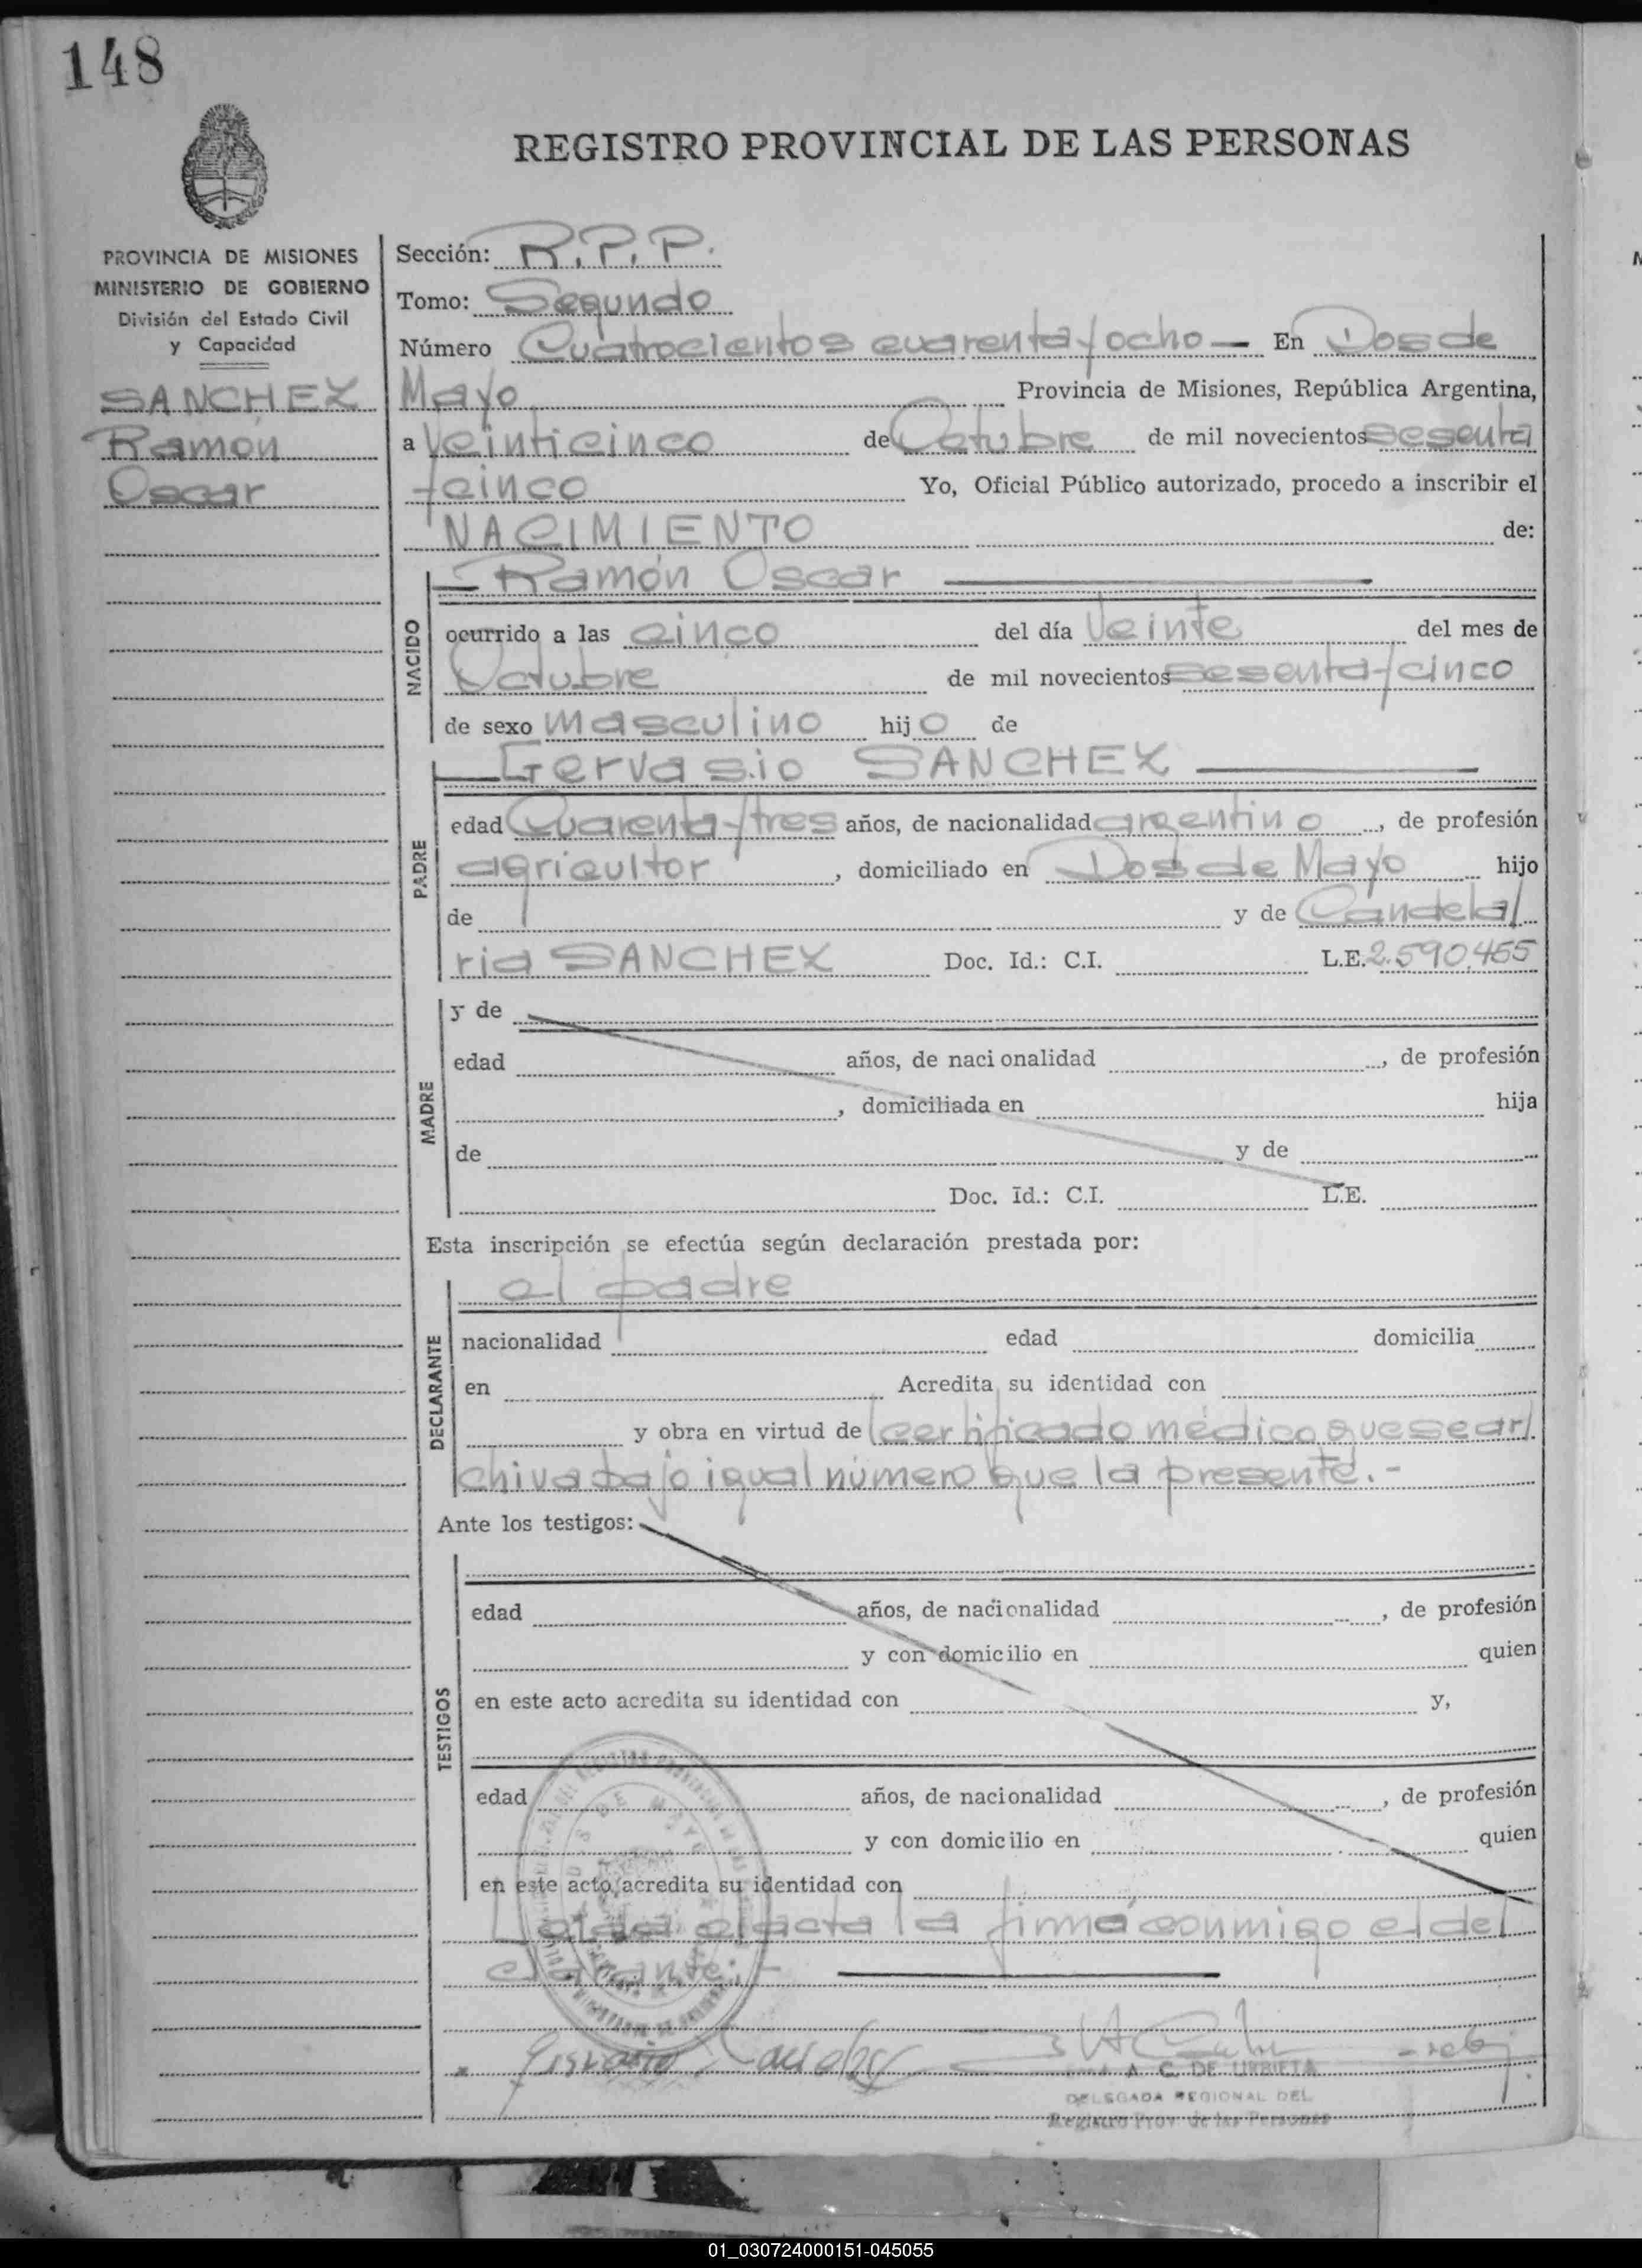 148
REGISTRO PROVINCIAL DE LAS PERSONAS
PROVINCIA DE MISIONES
MINISTERIO DE GOBIERNO
División del Estado Civil
y Capacidad
SANCHEZ
Ramón
Oscar
Sección: R.P.P.
Tomo: Segundo
Número Cuatrocientos cuarenta y ocho — En Dos de
Mayo Provincia de Misiones, República Argentina,
a Veinticinco de Octubre de mil novecientos sesenta
y cinco Yo, Oficial Público autorizado, procedo a inscribir el
NACIMIENTO de:
NACIDO
— Ramón Oscar —
ocurrido a las cinco del día Veinte del mes de
Octubre de mil novecientos sesenta y cinco
de sexo masculino hijo de
PADRE
— Gervasio SANCHEZ —
edad Cuarenta y tres años, de nacionalidad argentino, de profesión
agricultor, domiciliado en Dos de Mayo hijo
de y de Candela/
ria SANCHEZ Doc. Id.: C.I. L.E. 2.590.455
MADRE
y de
edad años, de naci onalidad , de profesión
, domiciliada en hija
de y de
Doc. Id.: C.I. L.E.
Esta inscripción se efectúa según declaración prestada por:
DECLARANTE
el padre
nacionalidad edad domicilia
en Acredita su identidad con
y obra en virtud de certificado médico que se ar/
chiva bajo igual número que la presente.-
Ante los testigos:
TESTIGOS
edad años, de nacionalidad , de profesión
y con domicilio en quien
en este acto acredita su identidad con y,
edad años, de nacionalidad , de profesión
y con domicilio en quien
en este acto acredita su identidad con
Leída el acta la firmá conmigo el de/
clarante.-
A. C. DE URBIETA
DELEGADA REGIONAL DEL
Registro Prov. de las Personas
01_030724000151-045055